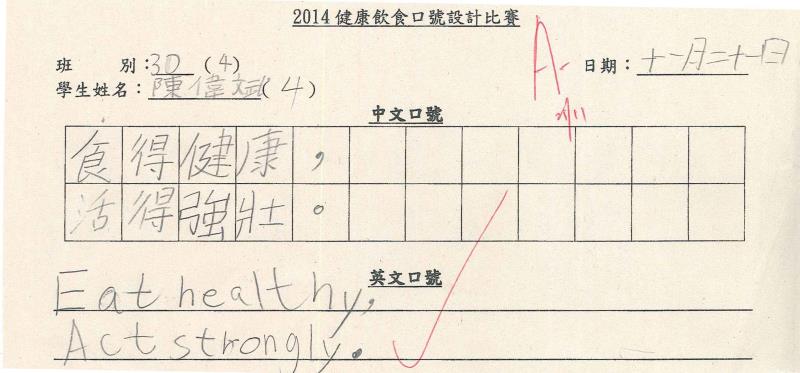 2014 健康飲食口號設計比賽
A-
班 別：3D (4) 日期：十一月二十一日
學生姓名：陳偉斌(4)
中文口號
食得健康，
活得強壯。
英文口號
Eat healthy,
Act strongly.